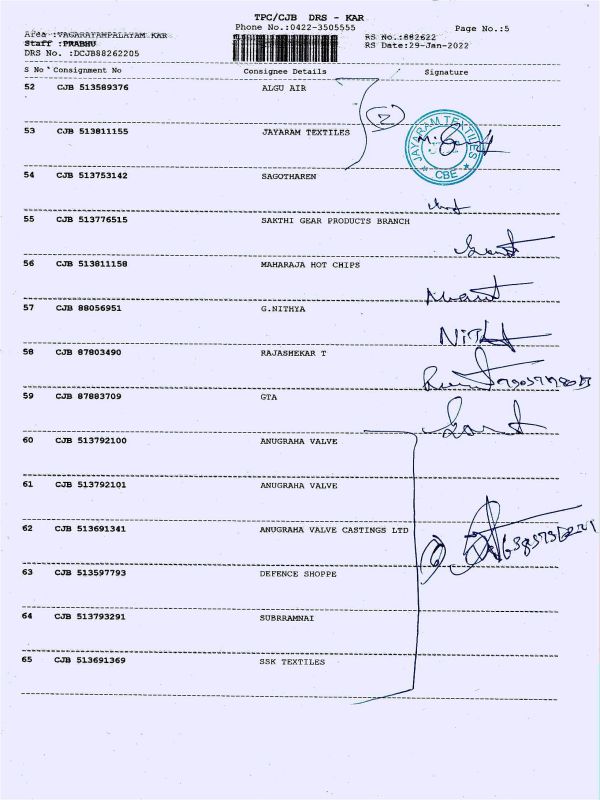 TPC/CJB DRS - KAR
Phone No.:0422-3505555
Page No.:5
Area :VAGARAYAMPALAYAM KAR
Staff :PRABHU
DRS No. :DCJB88262205
RS No.:882622
RS Date:29-Jan-2022
S No Consignment No Consignee Details Signature
52 CJB 513589376 ALGU AIR
2
53 CJB 513811155 JAYARAM TEXTILES
JAYARAM TEXTILES
CBE
54 CJB 513753142 SAGOTHAREN
55 CJB 513776515 SAKTHI GEAR PRODUCTS BRANCH
56 CJB 513811158 MAHARAJA HOT CHIPS
57 CJB 88056951 G.NITHYA
58 CJB 87803490 RAJASHEKAR T
59 CJB 87883709 GTA
60 CJB 513792100 ANUGRAHA VALVE
61 CJB 513792101 ANUGRAHA VALVE
62 CJB 513691341 ANUGRAHA VALVE CASTINGS LTD
63 CJB 513597793 DEFENCE SHOPPE
64 CJB 513793291 SUBRRAMNAI
65 CJB 513691369 SSK TEXTILES